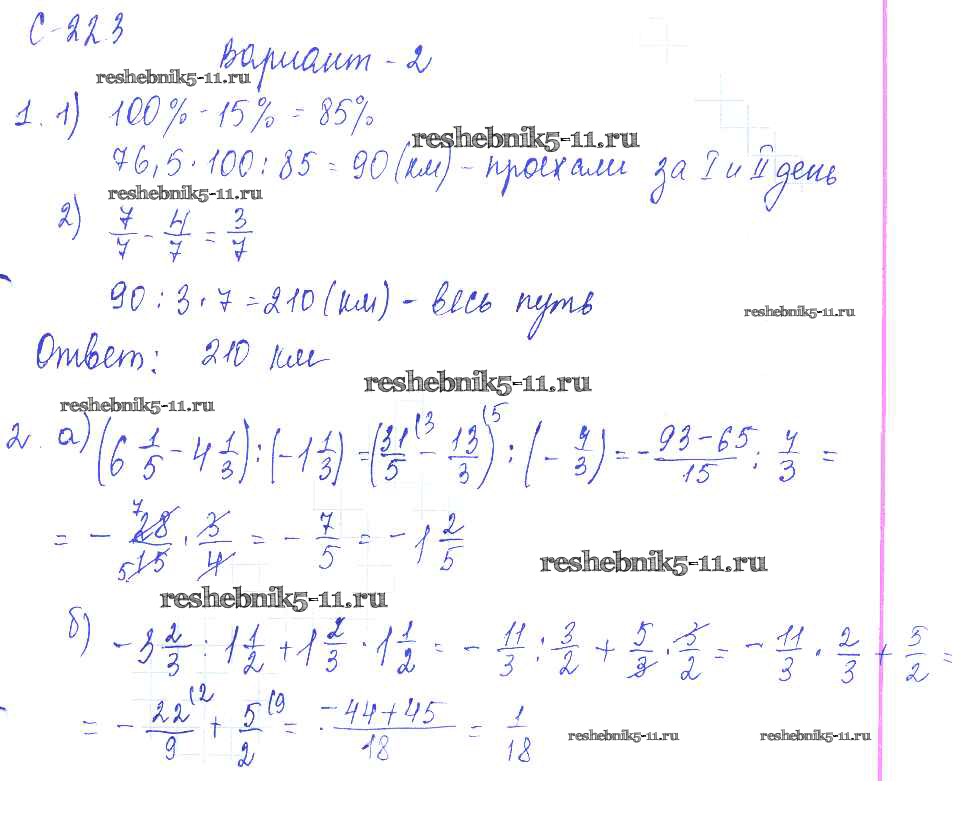 С-22.3
Вариант - 2
reshebnik5-11.ru
1. 1) 100% - 15% = 85%
reshebnik5-11.ru
76,5 · 100 : 85 = 90 (км) - проехали за I и II день
reshebnik5-11.ru
2) 7/7 - 4/7 = 3/7
90 : 3 · 7 = 210 (км) - весь путь
reshebnik5-11.ru
Ответ: 210 км
reshebnik5-11.ru
reshebnik5-11.ru
2. а) (6 1/5 - 4 1/3) : (-1 1/3) = (31/5 (3 - 13/3 (5) : (- 4/3) = - 93-65/15 : 4/3 =
= - 7 28/5 15 · 3/4 = - 7/5 = -1 2/5
reshebnik5-11.ru
reshebnik5-11.ru
б) -3 2/3 : 1 1/2 + 1 2/3 · 1 1/2 = - 11/3 : 3/2 + 5/3 · 3/2 = - 11/3 · 2/3 + 5/2 =
= - 22/9 (2 + 5/2 (9 = -44+45/18 = 1/18
reshebnik5-11.ru reshebnik5-11.ru